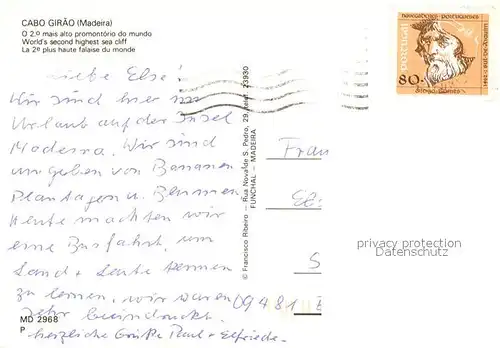 CABO GIRÃO (Madeira)
O 2.º mais alto promontório do mundo
World's second highest sea cliff
La 2ª plus haute falaise du monde
Liebe Else!
Wir sind hier im
Urlaub auf der Insel
Madeira. Wir sind
umgeben von Bananen
Plantagen u. Blumen
Heute machten wir
eine Busfahrt, um
Land + Leute kennen
zu lernen, wir waren
sehr beeindruckt.
herzliche Grüße Paul + Elfriede.
MD 2968
P
© Francisco Ribeiro — Rua Nova de S. Pedro, 29, Telef. 23930
FUNCHAL — MADEIRA
NAVEGADORES PORTUGUESES
PORTUGAL
80.
DIOGO GOMES
Frau
S
09481
privacy protection
Datenschutz